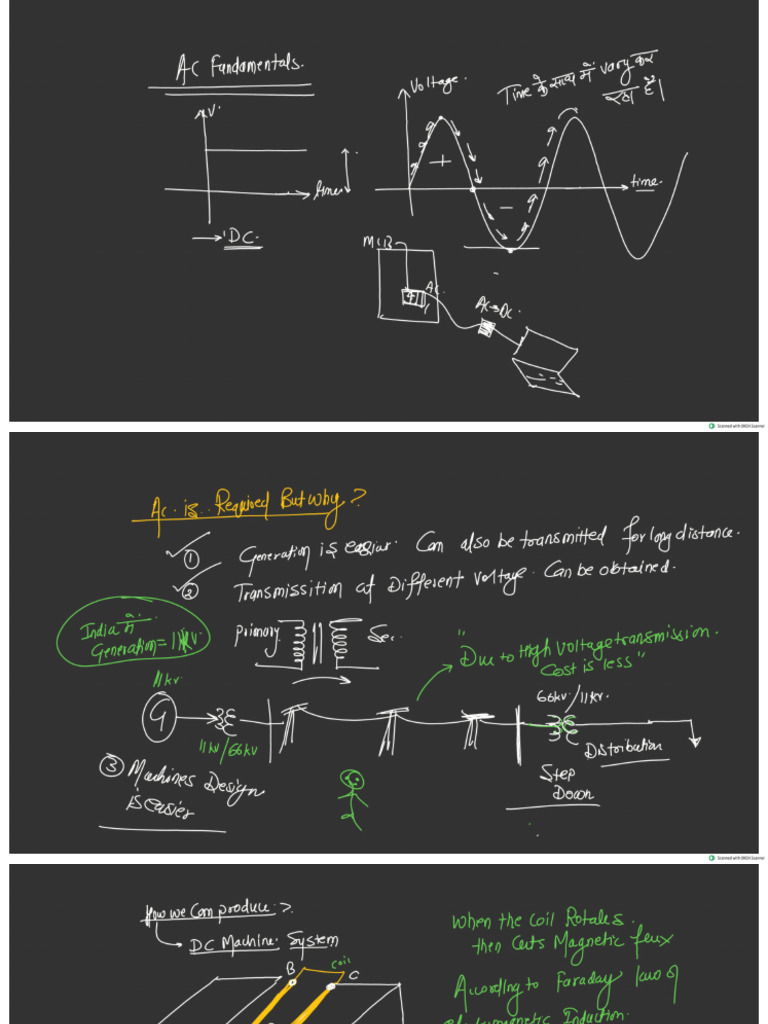 AC Fundamentals.
V.
time
DC.
Voltage.
Time के साथ में vary कर
रहा है।
+
-
time.
MCB
AC.
AC→DC.
Scanned with OKEN Scanner
AC is Required But why?
① Generation is easier. Can also be transmitted for long distance.
② Transmission at Different voltage. Can be obtained.
India में
Generation = 11kV.
Primary
Sec.
"Due to High voltage transmission.
Cost is less"
11kv.
G
11kv/66kv
66kv/11kv.
Distribution
Step
Down
③ Machines Design
is easier
Scanned with OKEN Scanner
How we can produce?
DC Machine System
B
coil
C
When the Coil Rotates.
then Cuts Magnetic flux
According to Faraday law of
Induction.